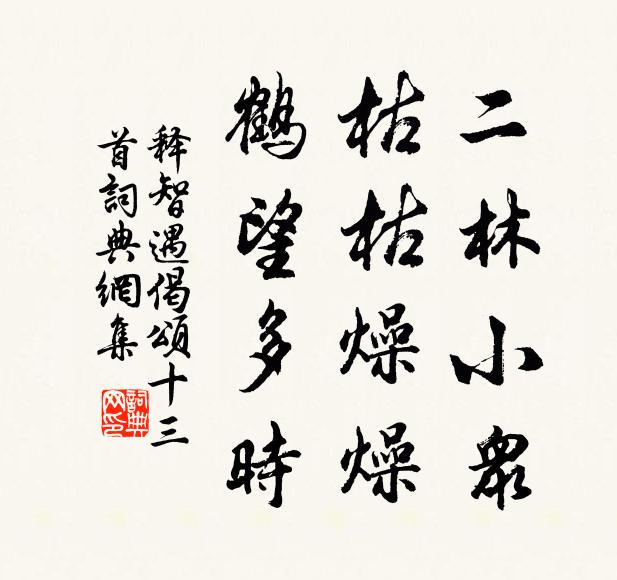 二林小眾
枯枯燥燥
鶴望多時
释智遇偈頌十三
首詞典網集
詞典
网印